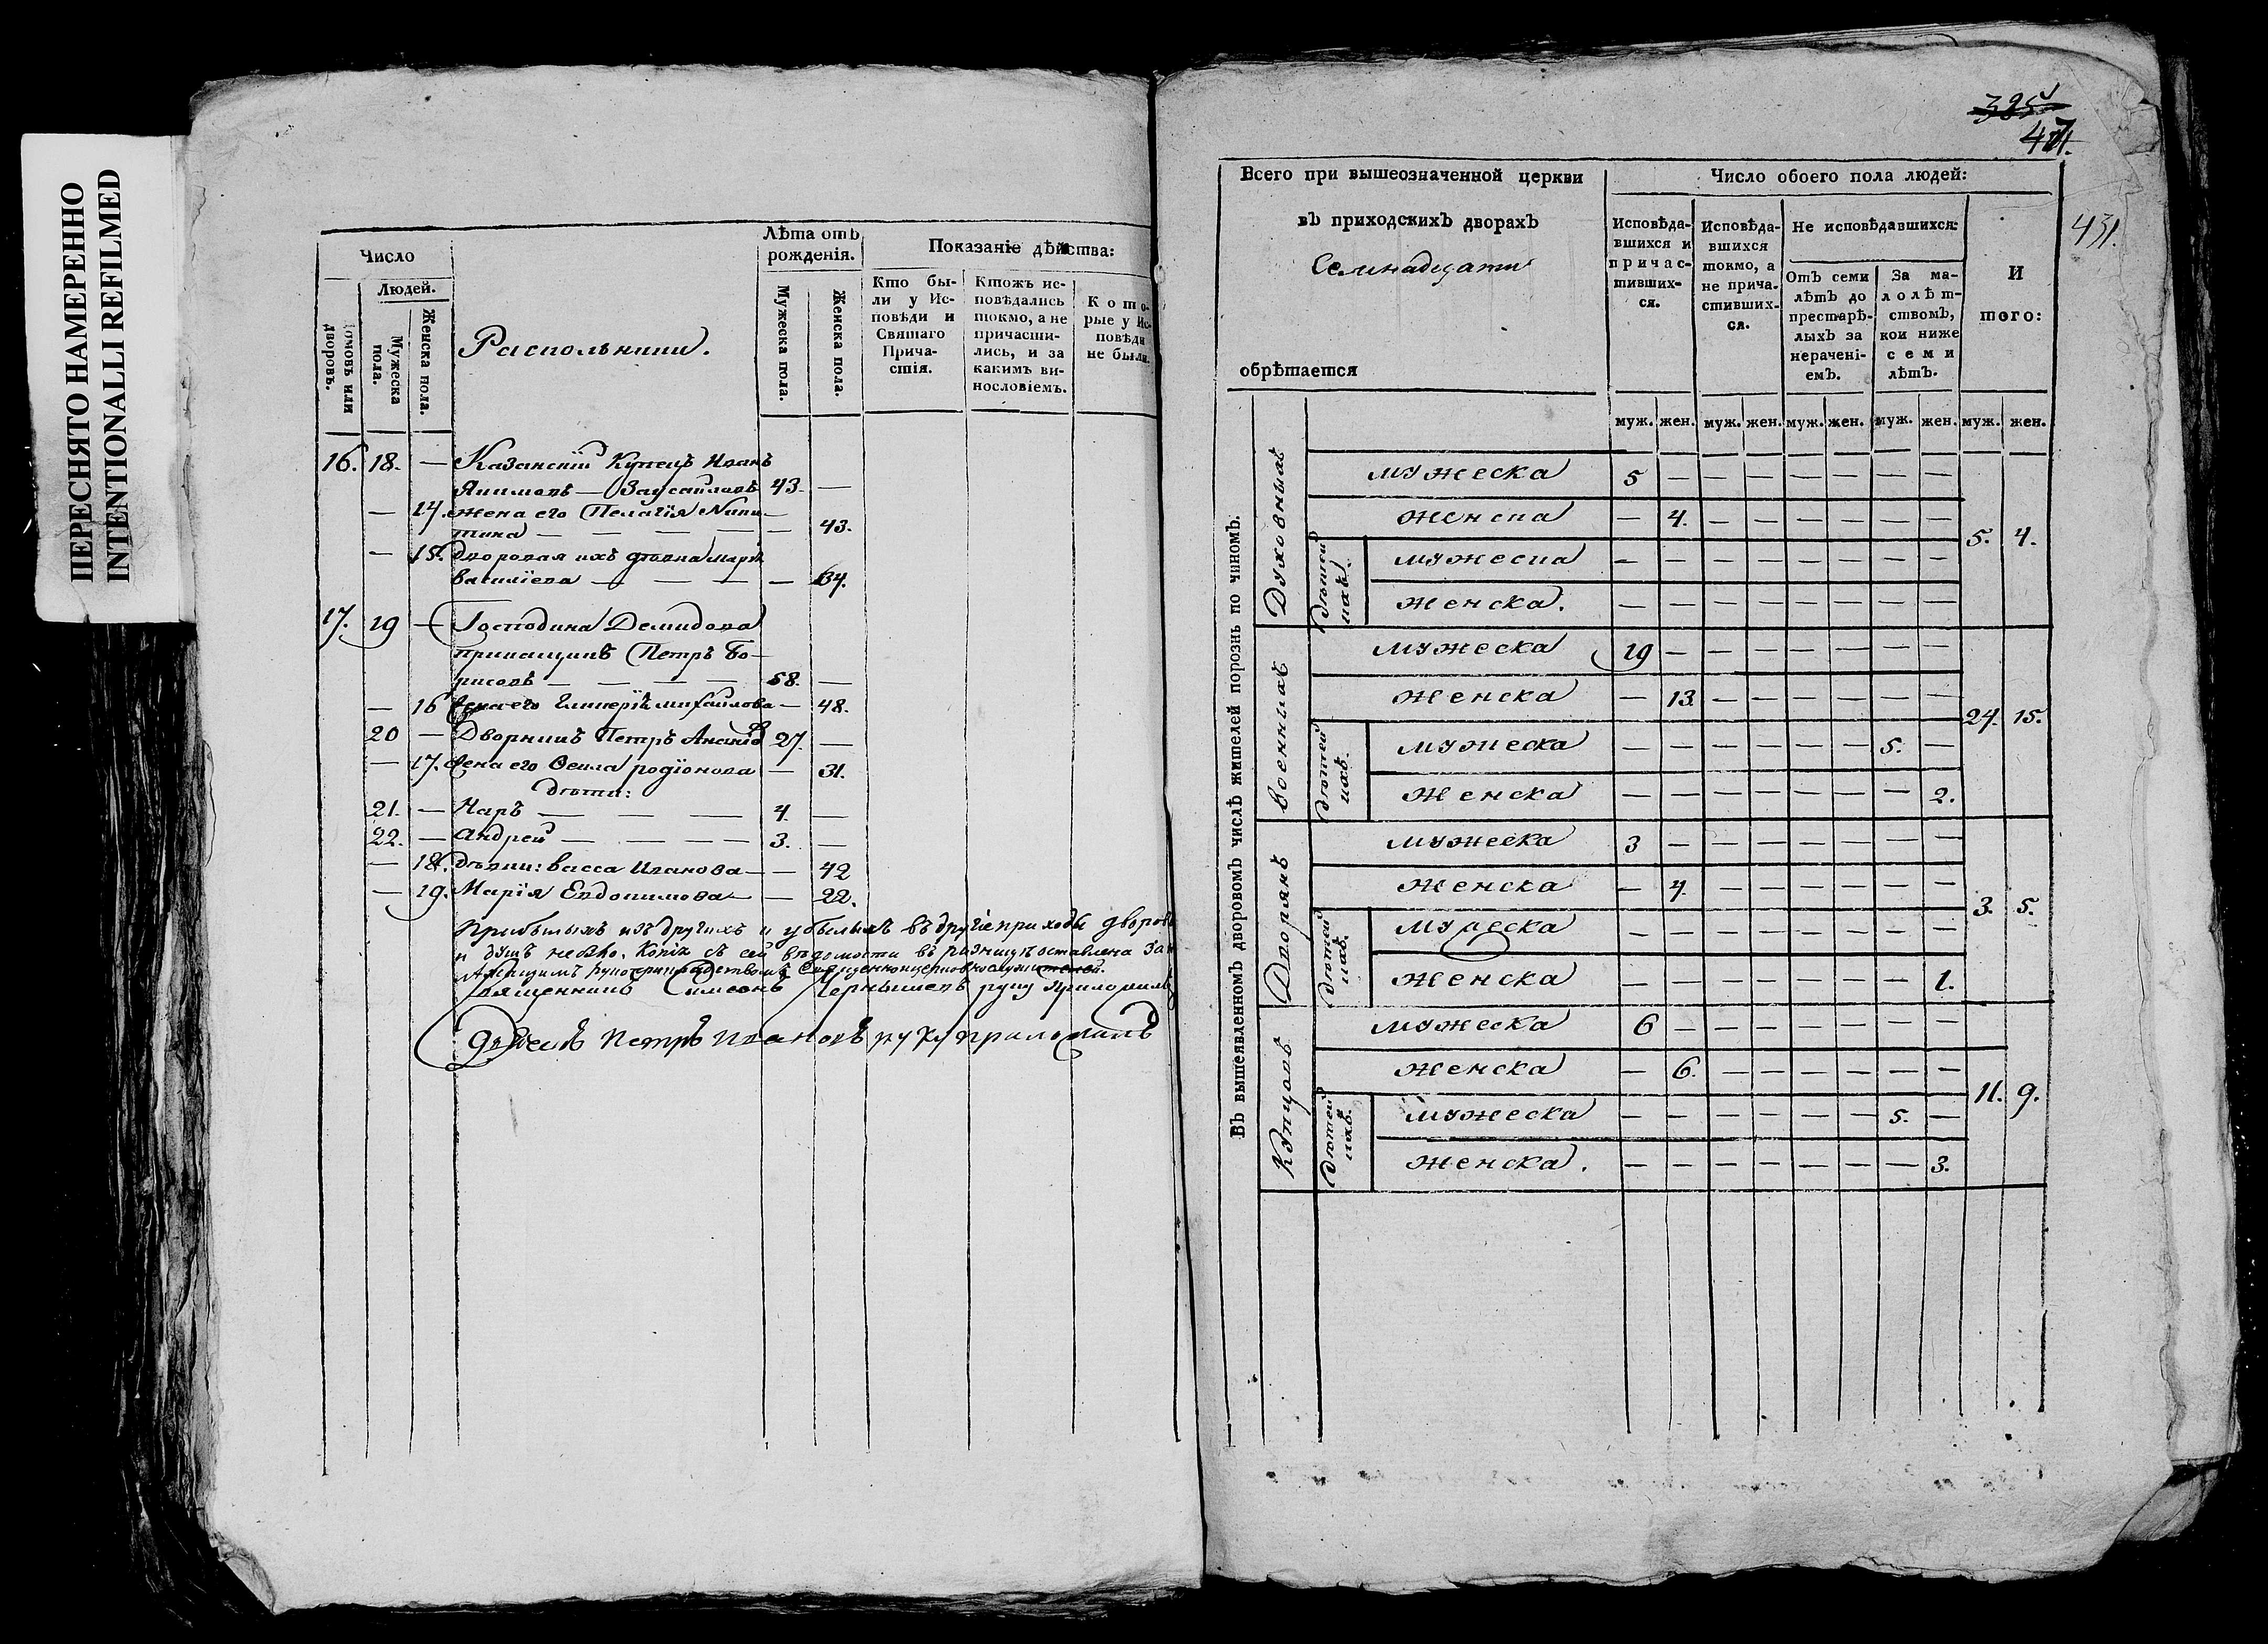 ПЕРЕСНЯТО НАМЕРЕННО
INTENTIONALLI REFILMED
Число
Людей.
домовъ или дворовъ.
Мужеска пола.
Женска пола.
Раскольники.
Лѣта отъ рожденія.
Мужеска пола.
Женска пола.
Показаніе дѣйства:
Кто были у Исповѣди и Святаго Причастія.
Ктожъ исповѣдались токмо, а не причастились, и за какимъ винословіемъ.
Которые у Исповѣди не были.
16. 18. — Казанскій Купецъ Иванъ
Якимовъ — Заусайловъ 43. —
— 14. жена его Пелагія Ники-
тина — — — — — 43.
— 15. дворовая ихъ дѣвка Марія
Василіева — — — — 64.
17. 19 — Господина Демидова
прикащикъ Петръ Бо-
рисовъ — — — — 58. —
— 16 жена его Гликерія Михайлова — 48.
20 — Дворникъ Петръ 27. —
— 17. жена его Ѳекла Родіонова — 31.
дѣти:
21. — Карпъ — — — 4. —
22. — Андрей — — — — 3. —
— 18. дѣвки: Васса Иванова — — 42
— 19. Марія Евдокимова — — 22.
Прибылыхъ изъ другихъ и убылыхъ въ другіе приходы дворовъ
и душъ не было. Копія съ сей вѣдомости въ ризницѣ оставлена за
рукоприкладствомъ Священноцерковнослужителей.
Священникъ Симеонъ Чернышевъ руку приложилъ
Петръ Ивановъ руку приложилъ
325
431.
Всего при вышеозначенной церкви
въ приходскихъ дворахъ
Семнадцати
обрѣтается
Число обоего пола людей:
Исповѣдавшихся и причастившихся.
Исповѣдавшихся токмо, а не причастившихся.
Не исповѣдавшихся:
Отъ семи лѣтъ до престарѣлыхъ за нераченіемъ.
За малолѣтствомъ, кои ниже семи лѣтъ.
И того:
муж. жен. муж. жен. муж. жен. муж. жен. муж. жен.
Въ вышеявленномъ дворовомъ числѣ жителей порознь по чиномъ.
Духовныхъ
мужеска 5 — — — — — — —
женска — 4. — — — — — —
5. 4.
дѣтей ихъ.
мужеска — — — — — — — —
женска. — — — — — — — —
Военныхъ
мужеска 19 — — — — — — —
женска — 13. — — — — — —
24. 15.
дѣтей ихъ.
мужеска — — — — — — 5. —
женска — — — — — — — 2.
Дворянъ
мужеска 3 — — — — — — —
женска — 4. — — — — — —
3. 5.
дѣтей ихъ.
мужеска — — — — — — — —
женска — — — — — — — 1.
Купцовъ
мужеска 6 — — — — — — —
женска — 6. — — — — — —
11. 9.
дѣтей ихъ.
мужеска — — — — — — 5. —
женска. — — — — — — — 3.